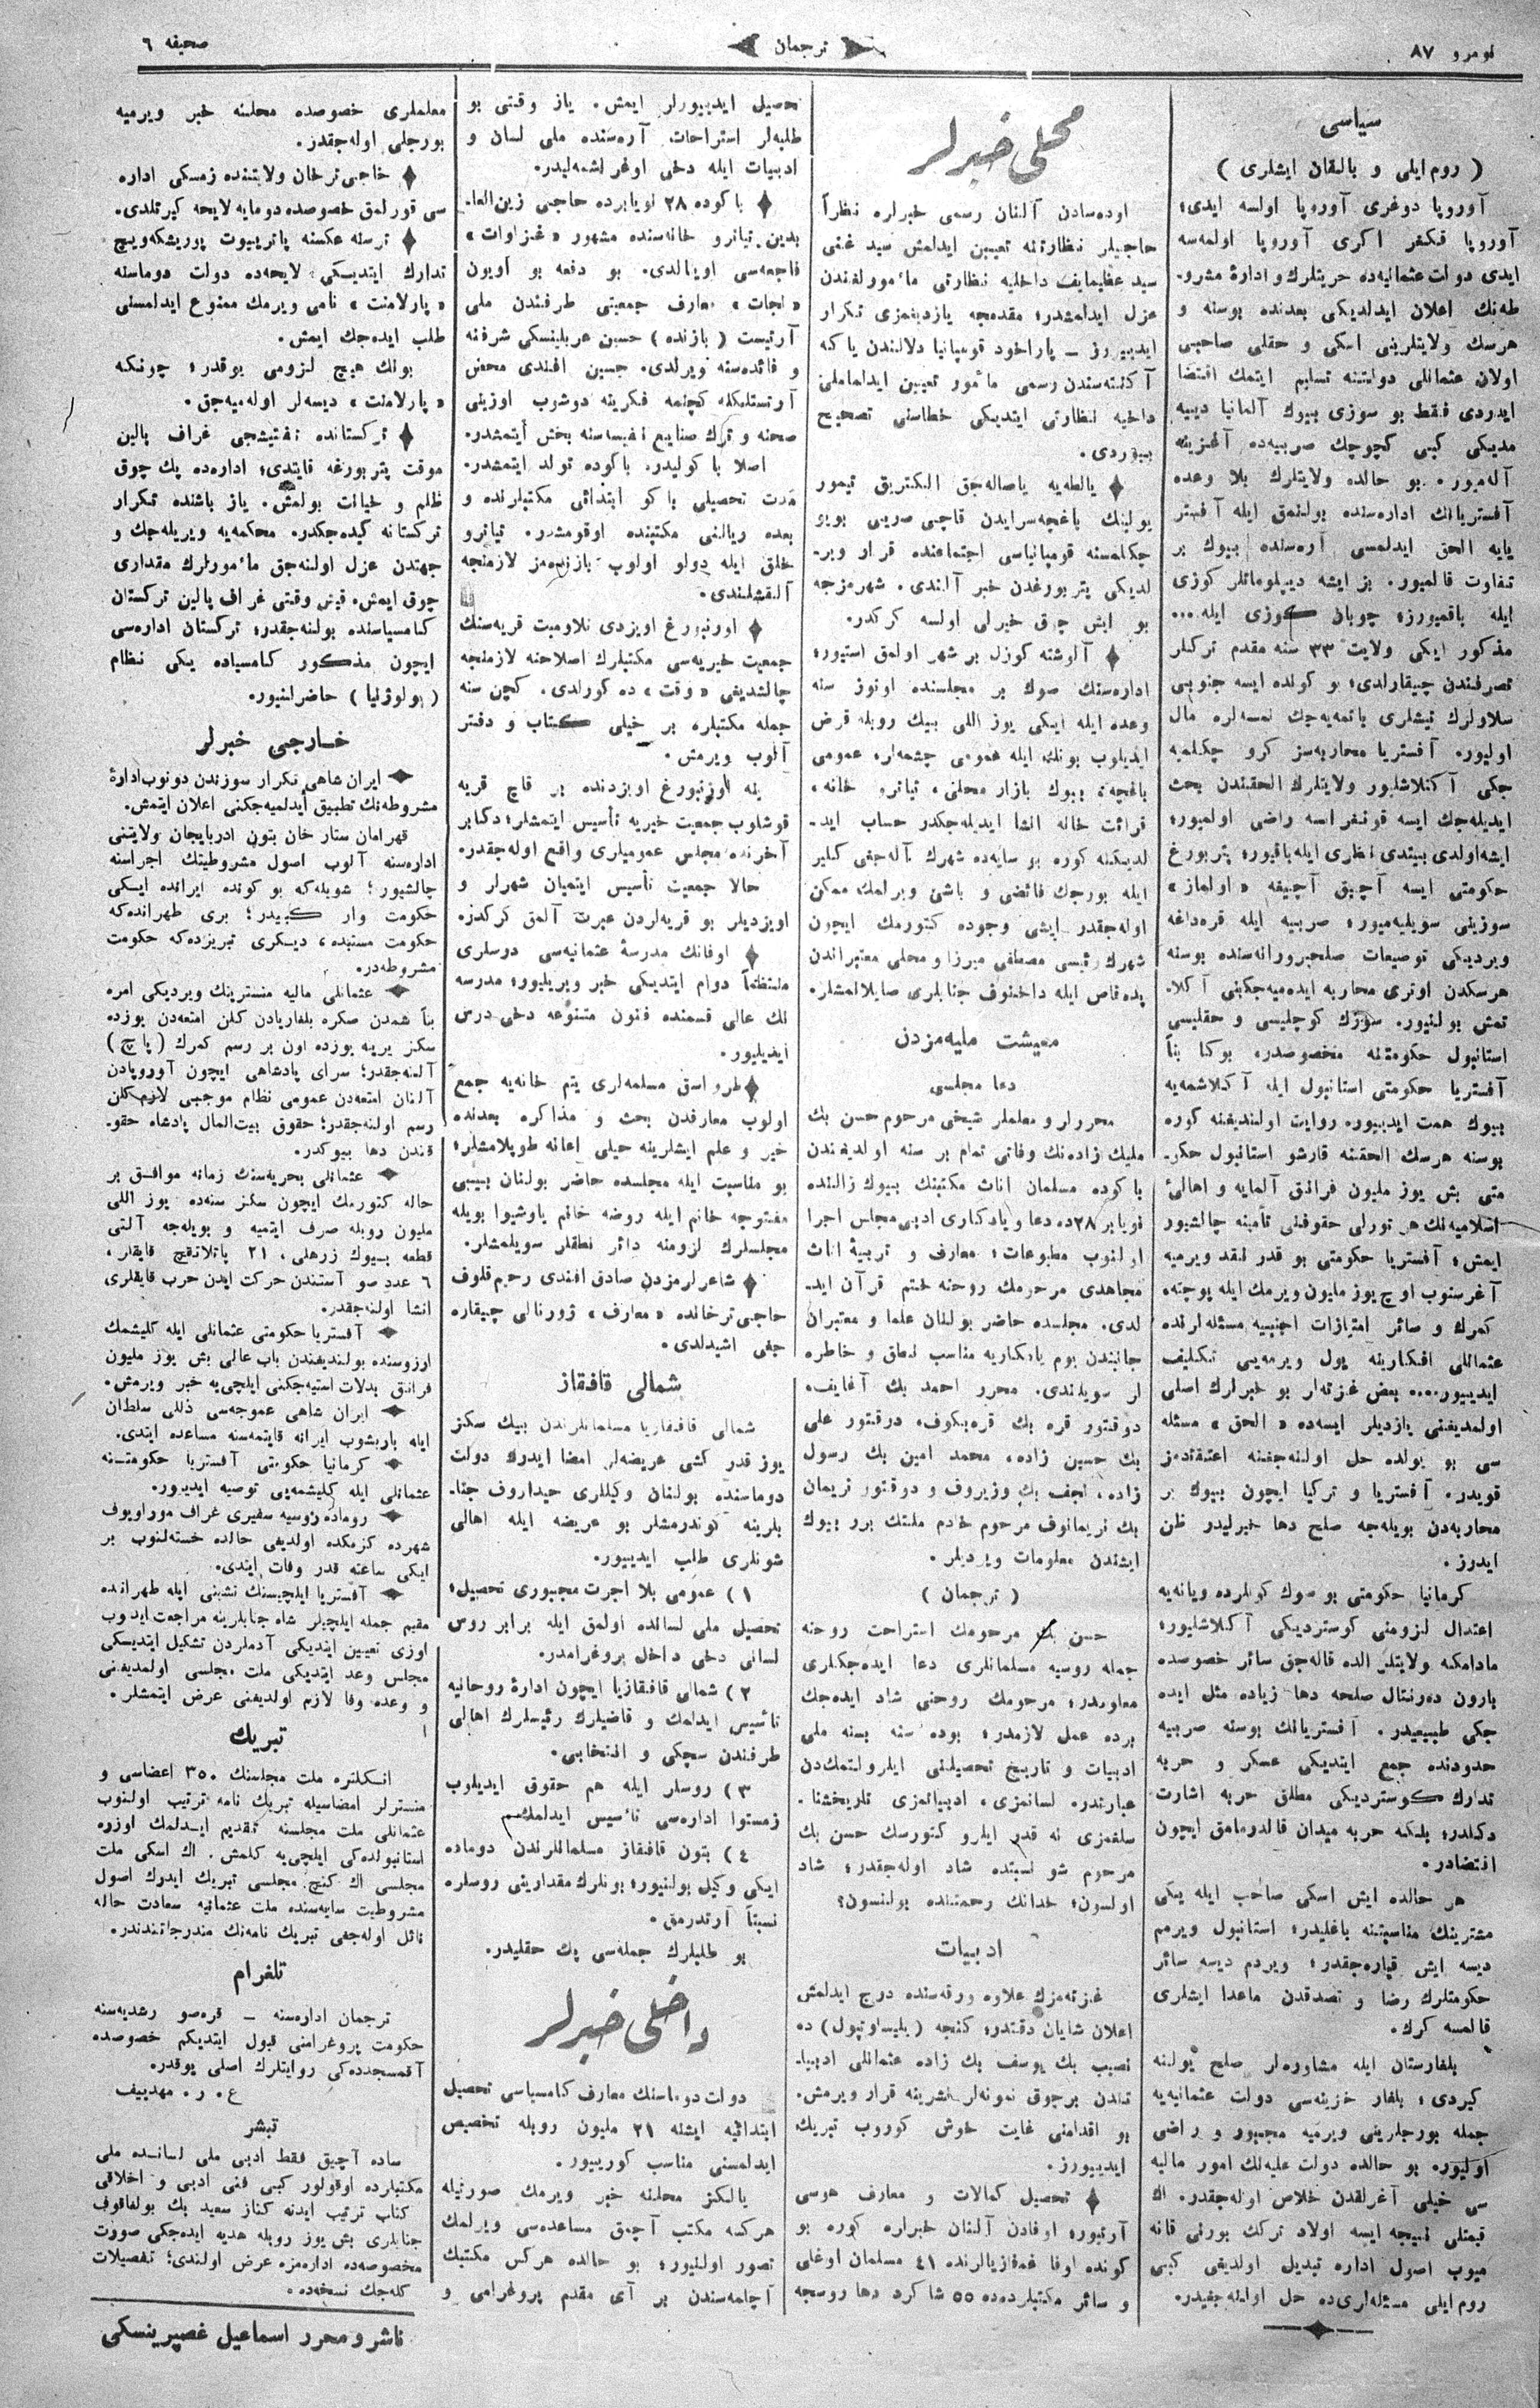 نومرو ٨٧
ترجمان
صحيفه ٦
سياسى
( روم ايلى و بالقان ايشلرى )
آوروپا دوغرى آوروپا اولسه ايدى؛
آوروپا فكفر اكرى آوروپا اولمه‌سه
ايدى دولت عثمانيه‌ده حريتلرك و ادارهٔ مشرو-
طه‌نك اعلان ايدلديكى بعدنده بوسنه و
هرسك ولايتلرينى اسكى و حقلى صاحبى
اولان عثمانلى دولتينه تسليم ايتمك اقتضا
ايدردى فقط بو سوزى بيوك آلمانيا ديييه
مديكى كبى كچوچك صربيه‌ده آغزينه
آله‌ميور. بو حالده ولايتلرك بلا وعده
آفستريانك اداره‌سنده بولنمق ايله آفستر
يايه الحق ايدلمسى آره‌سنده بيوك بر
تفاوت قالميور. بز ايشه ديپلوماتلر كوزى
ايله باقميورز؛ چوبان كوزى ايله...
مذكور ايكى ولايت ٣٣ سنه مقدم تركلر
تصرفندن چيقارلدى؛ بو كونده ايسه جنوبى
سلاولرك تيشلرى باتمه‌يه‌جك نمسه‌لره مال
اوليور. آفستريا محاربه‌سز كرو چكلميه
جكى آكلاشليور ولايتلرك الحقندن بحث
ايديله‌جك ايسه قونفرانسه راضى اولميور؛
ايشه‌اولدى بيتدى نظرى ايله‌باقيور؛ پتربورغ
حكومتى ايسه آچيق آچيغه «اولماز»
سوزينى سويليه‌ميور؛ صربيه ايله قره‌داغه
ويرديكى توصيعات صلحپرورانه‌سنده بوسنه
هرسكدن اوترى محاربه ايده‌ميه‌جكينى آكلا-
تمش بولنيور. سوزك كوچليسى و حقليسى
استانبول حكومتنه مخصوصدر. بوكا بناً
آفستريا حكومتى استانبول ايله آكلاشمه‌يه
بيوك همت ايدييور. روايت اولنديغنه كوره
بوسنه هرسك الحقنه قارشو استانبول حكو-
متى بش يوز مليون فرانق آلمايه و اهالئ
اسلاميه‌نك هر تورلى حقوقنى تأمينه چالشيور
ايمش؛ آفستريا حكومتى بو قدر نقد ويرميه
آغرسنوب اوچ يوز مليون ويرمك ايله بوجته،
كمرك و سائر امتيازات اجنبيه مسئله‌لرنده
عثمانلى افكارينه يول ويرمه‌يى تكليف
ايدييور.... بعض غزته‌لر بو خبرلرك اصلى
اولمديغنى يازديلر ايسه‌ده «الحق» مسئله
سى بو يولده حل اولنه‌جغنه اعتقادمز
قويدر. آفستريا و تركيا ايچون بيوك بر
محاربه‌دن بويله‌جه صلح دها خيرليدر ظن
ايدرز.
كرمانيا حكومتى بو صوك كونلرده ويانه‌يه
اعتدال لزومنى كوسترديكى آكلاشليور؛
مادامكه ولايتلر الده قاله‌جق سائر خصوصده
بارون ده‌رنتال صلحه دها زياده مثل ايده
جكى طبيعيدر. آفستريانك بوسنه صربيه
حدودنده جمع ايتديكى عسكر و حربه
تدارك كوسترديكى مطلق حربه اشارت
دكلدر؛ بلكه حربه ميدان قالدرمامق ايچون
اقتضادر.
هر حالده ايش اسكى صاحب ايله يكى
مشترينك مناسبتنه باغليدر؛ استانبول ويرمم
ديسه ايش قپاره‌جقدر؛ ويردم ديسه سائر
حكومتلرك رضا و تصدقدن ماعدا ايشلرى
قالمسه كرك.
بلغارستان ايله مشاوره‌لر صلح يولنه
كيردى؛ بلغار خزينه‌سى دولت عثمانيه‌يه
جمله بورجلرينى ويرميه مجبور و راضى
اوليور. بو حالده دولت عليه‌نك امور ماليه
سى خيلى آغرلقدن خلاص اوله‌جقدر. اك
قيمتلى نتيجه ايسه اولاد ترك بورنى قانه
ميوب اصول اداره تبديل اولديغى كبى
روم ايلى مسئله‌لرى‌ده حل اولنه‌جغيدر.
محلى خبرلر
اوده‌سادن آلنان رسمى خبرلره نظراً
حاجيلر نظارتنه تعيين ايدلمش سيد غنى
سيد عظيمبايف داخليه نظارتى مأمورلغندن
عزل ايدلمشدر؛ مقدمجه يازديغمزى تكرار
ايدييورز – پاراخود قومپانيا دلالندن ياكه
آكنته‌سندن رسمى مأمور تعيين ايدلماملى
داخليه نظارتى ايتديكى خطاسنى تصحيح
بيوردى.
يالطه‌يه ياصاله‌جق الكتريق تيمور
يولينك باغچه‌سرايدن قاچى صربى بويو
چكلمسنه قومپانياسى اجتماعنده قرار وير-
لديكى پتربورغدن خبر آلندى. شهرمزجه
بو ايش چوق خيرلى اولسه كركدر.
آلوشته كوزل بر شهر اولمق استيور؛
اداره‌سنك صوك بر مجلسنده اوتوز سنه
وعده ايله ايكى يوز اللى بيك روبله قرض
ايديلوب بونك ايله عمومى چشمه‌لر، عمومى
باغچه، بيوك بازار محلنى، تياترو خانه،
قرائت خانه انشا ايديله‌جكدر حساب ايد-
لديكينه كوره بو سايه‌ده شهرك آله‌جغى كلير
ايله بورجك فائضى و باشى ويرلمك ممكن
اوله‌جقدر. ايشى وجوده كتورمك ايچون
شهرك رئيسى مصطفى ميرزا و محلى معتبراندن
يده‌قاص ايله داخنوف جنابلرى صايلانمشلر.
معيشت مليه‌مزدن
دعا مجلسى
محررلر و معلملر شيخى مرحوم حسن بك
مليك زاده‌نك وفاتى تمام بر سنه اولديغندن
باكوده مسلمان اناث مكتبنك بيوك زالنده
نويابر ٢٨ده دعا و يادكارى ادبى مجلس اجرا
اولنوب مطبوعات؛ معارف و تربيهٔ اناث
مجاهدى مرحومك روحنه ختم قرآن ايد-
لدى. مجلسده حاضر بولنان علما و معتبران
جانبندن يوم يادكاريه مناسب نطاق و خاطره
لر سويلندى. محرر احمد بك آغايف،
دوقتور قره بك قره‌بكوف، دوقتور على
بك حسين زاده، محمد امين بك رسول
زاده، نجف بك وزيروف و دوقتور نريمان
بك نريمانوف مرحوم خادم ملتك برر بيوك
ايشندن معلومات ويرديلر.
( ترجمان )
حسن بك مرحومك استراحت روحنه
جمله روسيه مسلمانلرى دعا ايده‌جكلرى
معلومدر؛ مرحومك روحنى شاد ايده‌جك
برده عمل لازمدر؛ بوده سنه بسنه ملى
ادبيات و تاريخ تحصيلنى ايلرولتمكدن
عبارتدر. لسانمزى، ادبياتمزى تاريخشنا-
سلغمزى نه قدر ايلرو كتورسك حسن بك
مرحوم شو نسبتده شاد اوله‌جقدر؛ شاد
اولسون؛ خدانك رحمتنده بولنسون؟
ادبيات
غزته‌مزك علاوه ورقه‌سنده درج ايدلمش
اعلان شايان دقتدر؛ كنجه (يليساوتپول) ده
نصيب بك يوسف بك زاده عثمانلى ادبيا-
تندن برچوق نمونه‌لر نشرينه قرار ويرمش.
بو اقدامنى غايت خوش كوروب تبريك
ايدييورز.
تحصيل كمالات و معارف هوسى
آرتيور؛ اوفادن آلنان خبرلره كوره بو
كونده اوفا غمنازيالرنده ٤١ مسلمان اوغلى
و سائر مكتبلرده‌ده ٥٥ شاكرد دها روسجه
تحصيل ايدييورلر ايمش. ياز وقتى بو
طلبه‌لر استراحات آره‌سنده ملى لسان و
ادبيات ايله دخى اوغراشمه‌ليدر.
باكوده ٢٨ نويابرده حاجى زين‌العا-
بدين تياترو خانه‌سنده مشهور «غزاوات»
فاجعه‌سى اوينالدى. بو دفعه بو اويون
«نجات» معارف جمعيتى طرفندن ملى
آرتيست (بازنده) حسين عربلينسكى شرفنه
و فائده‌سنه ويرلدى. حسين افندى محض
آرتستلكله كچنمه فكرينه دوشوب اوزينى
صحنه و ترك صنايع نفيسه‌سنه بخش ايتمشدر.
اصلا باكوليدر. باكوده تولد ايتمشدر.
مدت تحصيلى باكو ابتدائى مكتبلرنده و
بعده ريالنى مكتبنده اوقومشدر. تياترو
خلق ايله دولو اولوب بازنده‌مز لازمنجه
آلقشلندى.
اورنبورغ اويزدى نلاوميت قريه‌سنك
جمعيت خيريه‌سى مكتبلرك اصلاحنه لازمنجه
چالشديغى «وقت» ده كورلدى. كچن سنه
جمله مكتبلره بر خيلى كتاب و دفتر
آلوب ويرمش.
ينه اورنبورغ اويزدنده بر قاچ قريه
قوشلوب جمعيت خيريه تأسيس ايتمشلر؛ دكابر
آخرنده مجلس عموميلرى واقع اوله‌جقدر.
حالا جمعيت تأسيس ايتميان شهرلر و
اويزديلر بو قريه‌لردن عبرت آلمق كركدر.
اوفانك مدرسهٔ عثمانيه‌سى درسلرى
منتظماً دوام ايتديكى خبر ويريليور؛ مدرسه
نك عالى قسمنده فنون متنوعه دخى درس
ايديليور.
طرواسق مسلمه‌لرى يتم خانه‌يه جمع
اولوب معارفدن بحث و مذاكره بعدنده
خير و علم ايشلرينه خيلى اعانه طوپلامشلر؛
بو مناسبت ايله مجلسده حاضر بولنان بيبى
مفتوحه خانم ايله روضه خانم ياوشيوا بويله
مجلسلرك لزومنه دائر نطقلر سويلمشلر.
شاعرلرمزدن صادق افندى رحيم‌قلوف
حاجى ترخانده «معارف» ژورنالى چيقاره
جغى اشيدلدى.
شمالى قافقاز
شمالى قافقازيا مسلمانلرندن بيك سكز
يوز قدر كشى عريضه‌لر امضا ايدرك دولت
دوماسنده بولنان وكيللرى حيداروف جنا-
بلرينه كوندرمشلر بو عريضه ايله اهالى
شونلرى طلب ايدييور.
١ ) عمومى بلا اجرت مجبورى تحصيل؛
تحصيل ملى لسانده اولمق ايله برابر روس
لسانى دخى داخل پروغرامدر.
٢ ) شمالى قافقازيا ايچون ادارهٔ روحانيه
تأسيس ايدلمك و قاضيلرك رئيسلرك اهالى
طرفندن سچكى و انتخابى.
٣ ) روسلر ايله هم حقوق ايديلوب
زمستوا اداره‌سى تأسيس ايدلمك
٤ ) بتون قافقاز مسلمانلرندن دوماده
ايكى وكيل بولنيور؛ بونلرك مقدارينى روسلره
نسبتاً آرتدرمق.
بو طلبلرك جمله‌سى پك حقليدر.
داخلى خبرلر
دولت دوماسنك معارف كامسياسى تحصيل
ابتدائيه ايشنه ٢١ مليون روبله تخصيص
ايدلمسنى مناسب كورييور.
يالكز محلنه خبر ويرمك صورتيله
هركسه مكتب آچمق مساعده‌سى ويرلمك
تصور اولنيور؛ بو حالده هركس مكتبك
آچلمه‌سندن بر آى مقدم پروغرامى و
معلملرى خصوصده محلنه خبر ويرميه
بورجلى اوله‌جقدر.
حاجى ترخان ولايتنده زمسكى اداره
سى قورلمق خصوصده دومايه لايحه كيرتلدى.
ترسنه عكسنه پاتريوت پوريشكه‌ويچ
تدارك ايتديكى لايحه‌ده دولت دوماسنه
«پارلامنت» نامى ويرمك ممنوع ايدلمسنى
طلب ايده‌جك ايمش.
بونك هيچ لزومى يوقدر؛ چونكه
«پارلامنت» ديسه‌لر اوله‌ميه‌جق.
تركستانده تفتيشجى غراف پالين
موقت پتربورغه قايتدى؛ اداره‌ده پك چوق
ظلم و خيانت بولمش. ياز باشنده تكرار
تركستانه كيده‌جكدر. محكمه‌يه ويريله‌جك و
جهتدن عزل اولنه‌جق مأمورلرك مقدارى
چوق ايمش. قيش وقتى غراف پالين تركستان
كامسياسنده بولنه‌جقدر؛ تركستان اداره‌سى
ايچون مذكور كامسياده يكى نظام
( پولوژنيا ) حاضرلنيور.
خارجى خبرلر
ايران شاهى تكرار سوزندن دونوب‌ادارهٔ
مشروطه‌نك تطبيق ايدلميه‌جكنى اعلان ايتمش.
قهرامان ستار خان بتون ادربايجان ولايتنى
اداره‌سنه آلوب اصول مشروطيتك اجراسنه
چالشيور؛ شويله‌كه بو كونده ايرانده ايكى
حكومت وار كبيدر؛ برى طهرانده‌كه
حكومت مستبده، ديكرى تبريزده‌كه حكومت
مشروطه‌در.
عثمانلى ماليه منسترينك ويرديكى امره
بناً شمدن صكره بلغاريادن كلن امتعه‌دن يوزده
سكز يرينه يوزده اون بر رسم كمرك (باج)
آلنه‌جقدر؛ سراى پادشاهى ايچون آوروپادن
آلنان امتعه‌دن عمومى نظام موجبى لازم كلن
رسم اولنه‌جقدر؛ حقوق بيت‌المال پادشاه حقو-
قندن دها بيوكدر.
عثمانلى بحريه‌سنك زمانه موافق بر
حاله كتورمك ايچون سكز سنه‌ده يوز اللى
مليون روبله صرف ايتميه و بويله‌جه آلتى
قطعه بيوك زرهلى، ٢١ پاتلاتقچ قايقلر،
٦ عدد صو آستندن حركت ايدن حرب قايقلرى
انشا اولنه‌جقدر.
آفستريا حكومتى عثمانلى ايله كليشمك
ارزوسنده بولنديغندن باب عالى بش يوز مليون
فرانق بدلات استيه‌جكنى ايلچى‌يه خبر ويرمش.
ايران شاهى عموجه‌سى ذللى سلطان
ايله باريشوب ايرانه قايتمه‌سنه مساعده ايتدى.
كرمانيا حكومتى آفستريا حكومتنه
عثمانلى ايله كليشمه‌يى توصيه ايدييور.
روماده روسيه سفيرى غراف موراويوف
شهرده كزمكده اولديغى حالده خسته‌لنوب بر
ايكى ساعته قدر وفات ايتدى.
آفستريا ايلچيسنك تشبثى ايله طهرانده
مقيم جمله ايلچيلر شاه جنابلرينه مراجعت ايدوب
اوزى تعيين ايتديكى آدملردن تشكيل ايتديكى
مجلس وعد ايتديكى ملت مجلسى اولمديغنى
و وعده وفا لازم اولديغنى عرض ايتمشلر.
تبريك
انكلتره ملت مجلسنك ٣٥٠ اعضاسى و
منسترلر امضاسيله تبريك نامه ترتيب اولنوب
عثمانلى ملت مجلسنه تقديم ايدلمك اوزره
استانبولده‌كى ايلچى‌يه كلمش. اك اسكى ملت
مجلسى اك كنج مجلسى تبريك ايدرك اصول
مشروطيت سايه‌سنده ملت عثمانيه سعادت حاله
نائل اوله‌جغى تبريك نامه‌نك مندرجاتندندر.
تلغرام
ترجمان اداره‌سنه – قره‌صو رشديه‌سنه
حكومت پروغرامنى قبول ايتديكم خصوصده
آقمسجدده‌كى روايتلرك اصلى يوقدر.
ع. ر. مهدييف
تبشر
ساده آچيق فقط ادبى ملى لسانده ملى
مكتبلرده اوقولور كبى فنى ادبى و اخلاقى
كتاب ترتيب ايدنه كناز سعيد بك بولغاقوف
جنابلرى بش يوز روبله هديه ايده‌جكى صورت
مخصوصه‌ده اداره‌مزه عرض اولندى؛ تفصيلات
كله‌جك نسخه‌ده.
ناشر و محرر اسماعيل غصپرينسكى